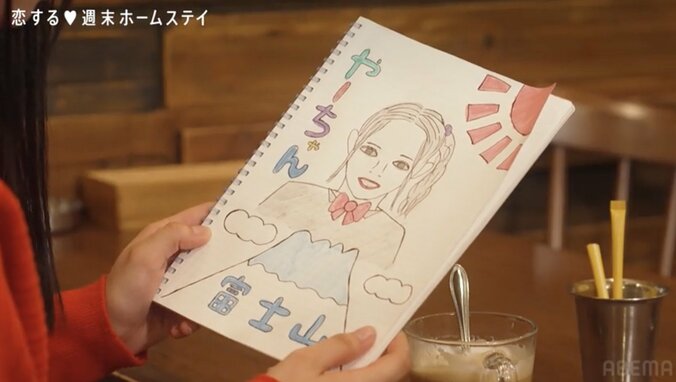 恋する♥週末ホームステイ
やーちゃん
富士山
ABEMA